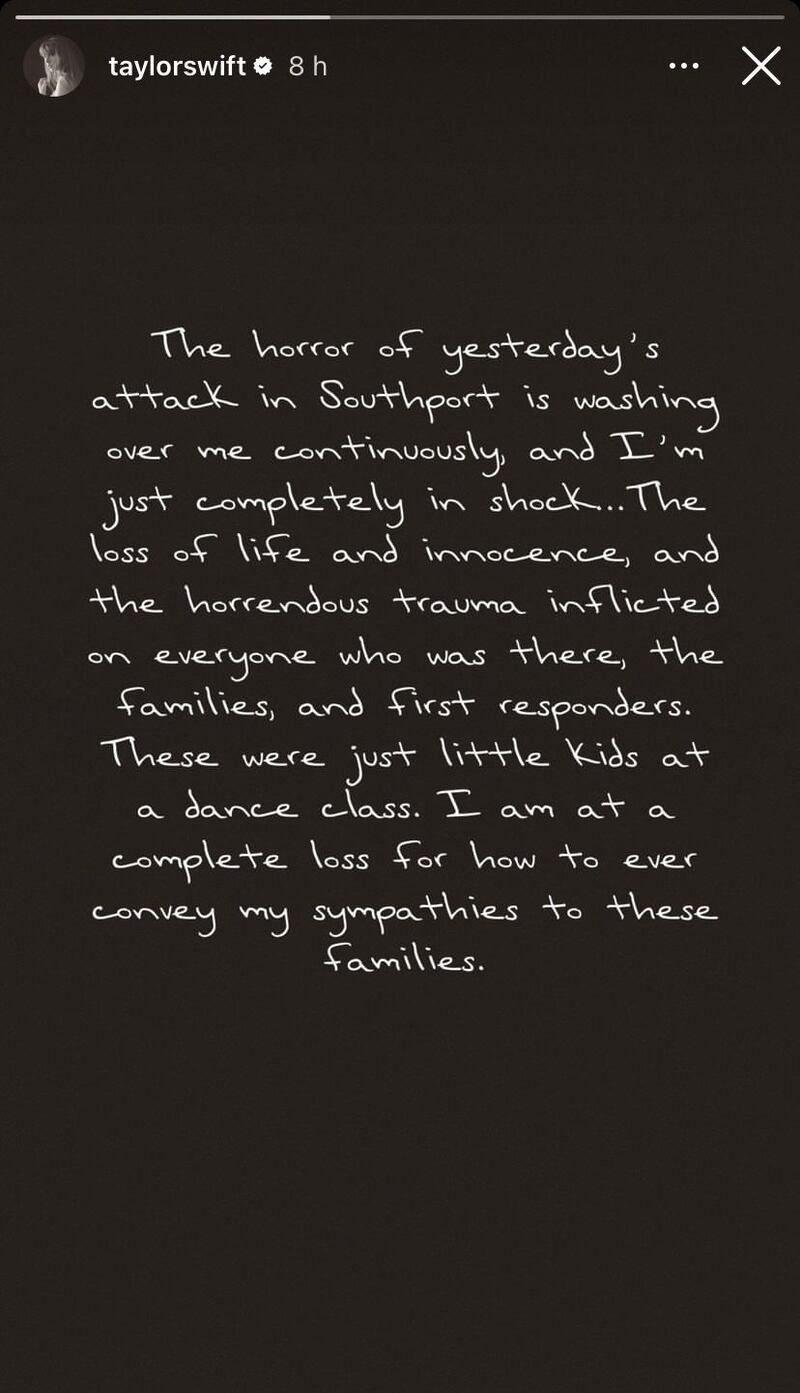 taylorswift 8 h
The horror of yesterday's
attack in Southport is washing
over me continuously, and I'm
just completely in shock...The
loss of life and innocence, and
the horrendous trauma inflicted
on everyone who was there, the
families, and first responders.
These were just little kids at
a dance class. I am at a
complete loss for how to ever
convey my sympathies to these
families.